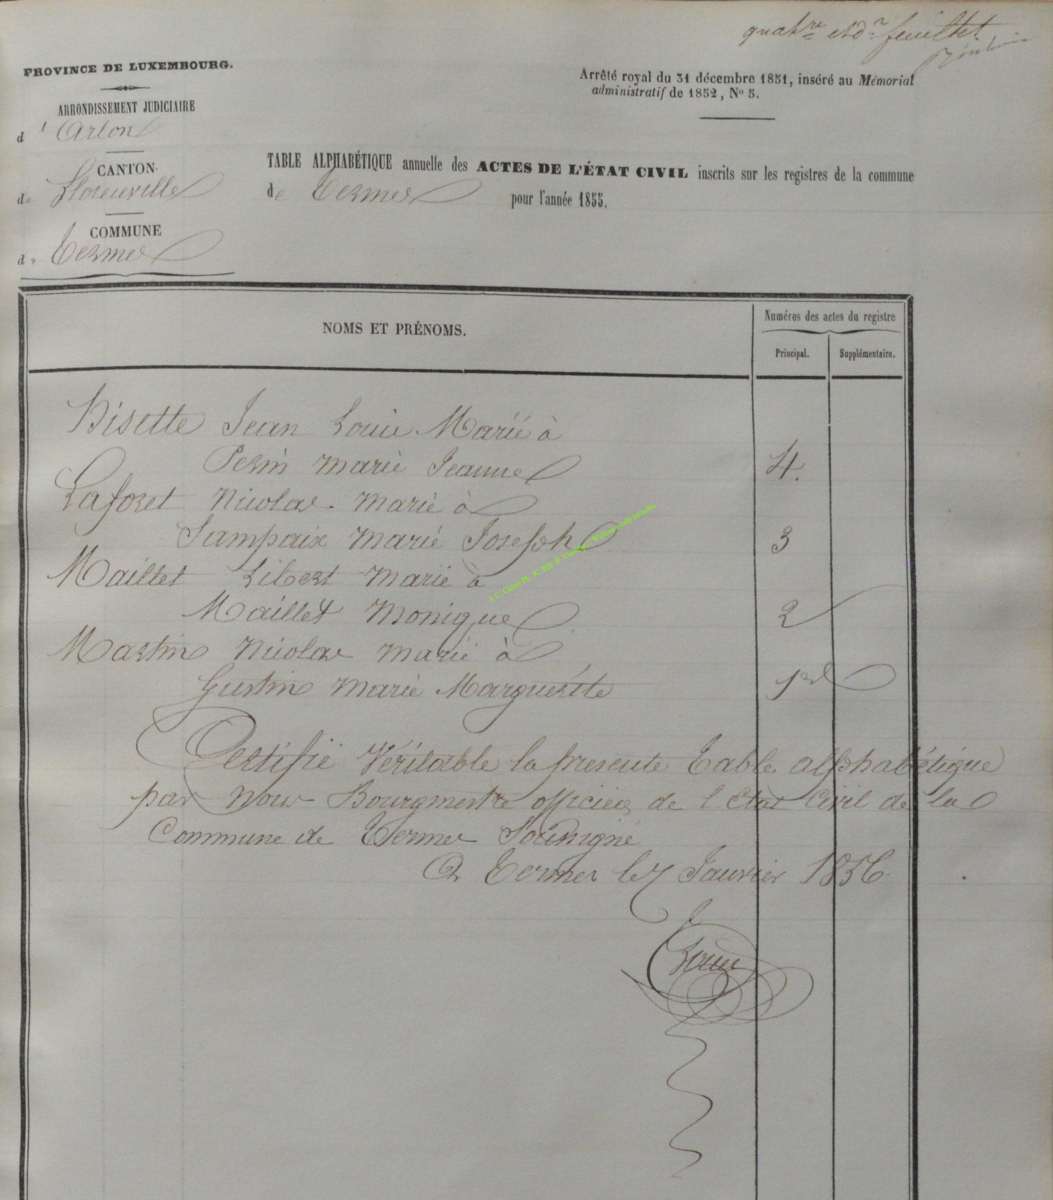 quatre et dr feuillet
PROVINCE DE LUXEMBOURG.
Arrêté royal du 31 décembre 1851, inséré au Mémorial
administratif de 1852, No 5.
ARRONDISSEMENT JUDICIAIRE
d'Arlon
CANTON
de Florenville
COMMUNE
de Termes
TABLE ALPHABÉTIQUE annuelle des ACTES DE L'ÉTAT CIVIL inscrits sur les registres de la commune
de Termes pour l'année 1855.
NOMS ET PRÉNOMS.
Numéros des actes du registre
Principal. Supplémentaire.
Hisette Jean Louis Marié à
Persin marie Jeanne 4.
Laforet Nicolas marié à
Sampaix marie Joseph 3
Maillet Libert marié à
Maillet Monique 2
Martin Nicolas marié à
Gustin Marie Marguerite 1er
Certifié Véritable la presente Table alphabétique
par nous Bourgmestre officier de l'Etat Civil de la
Commune de Termes Soussigné
A Termes le 7 Janvier 1856